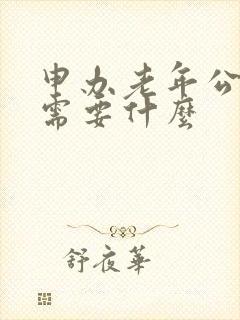 申办老年公
需要什麽
舒夜華